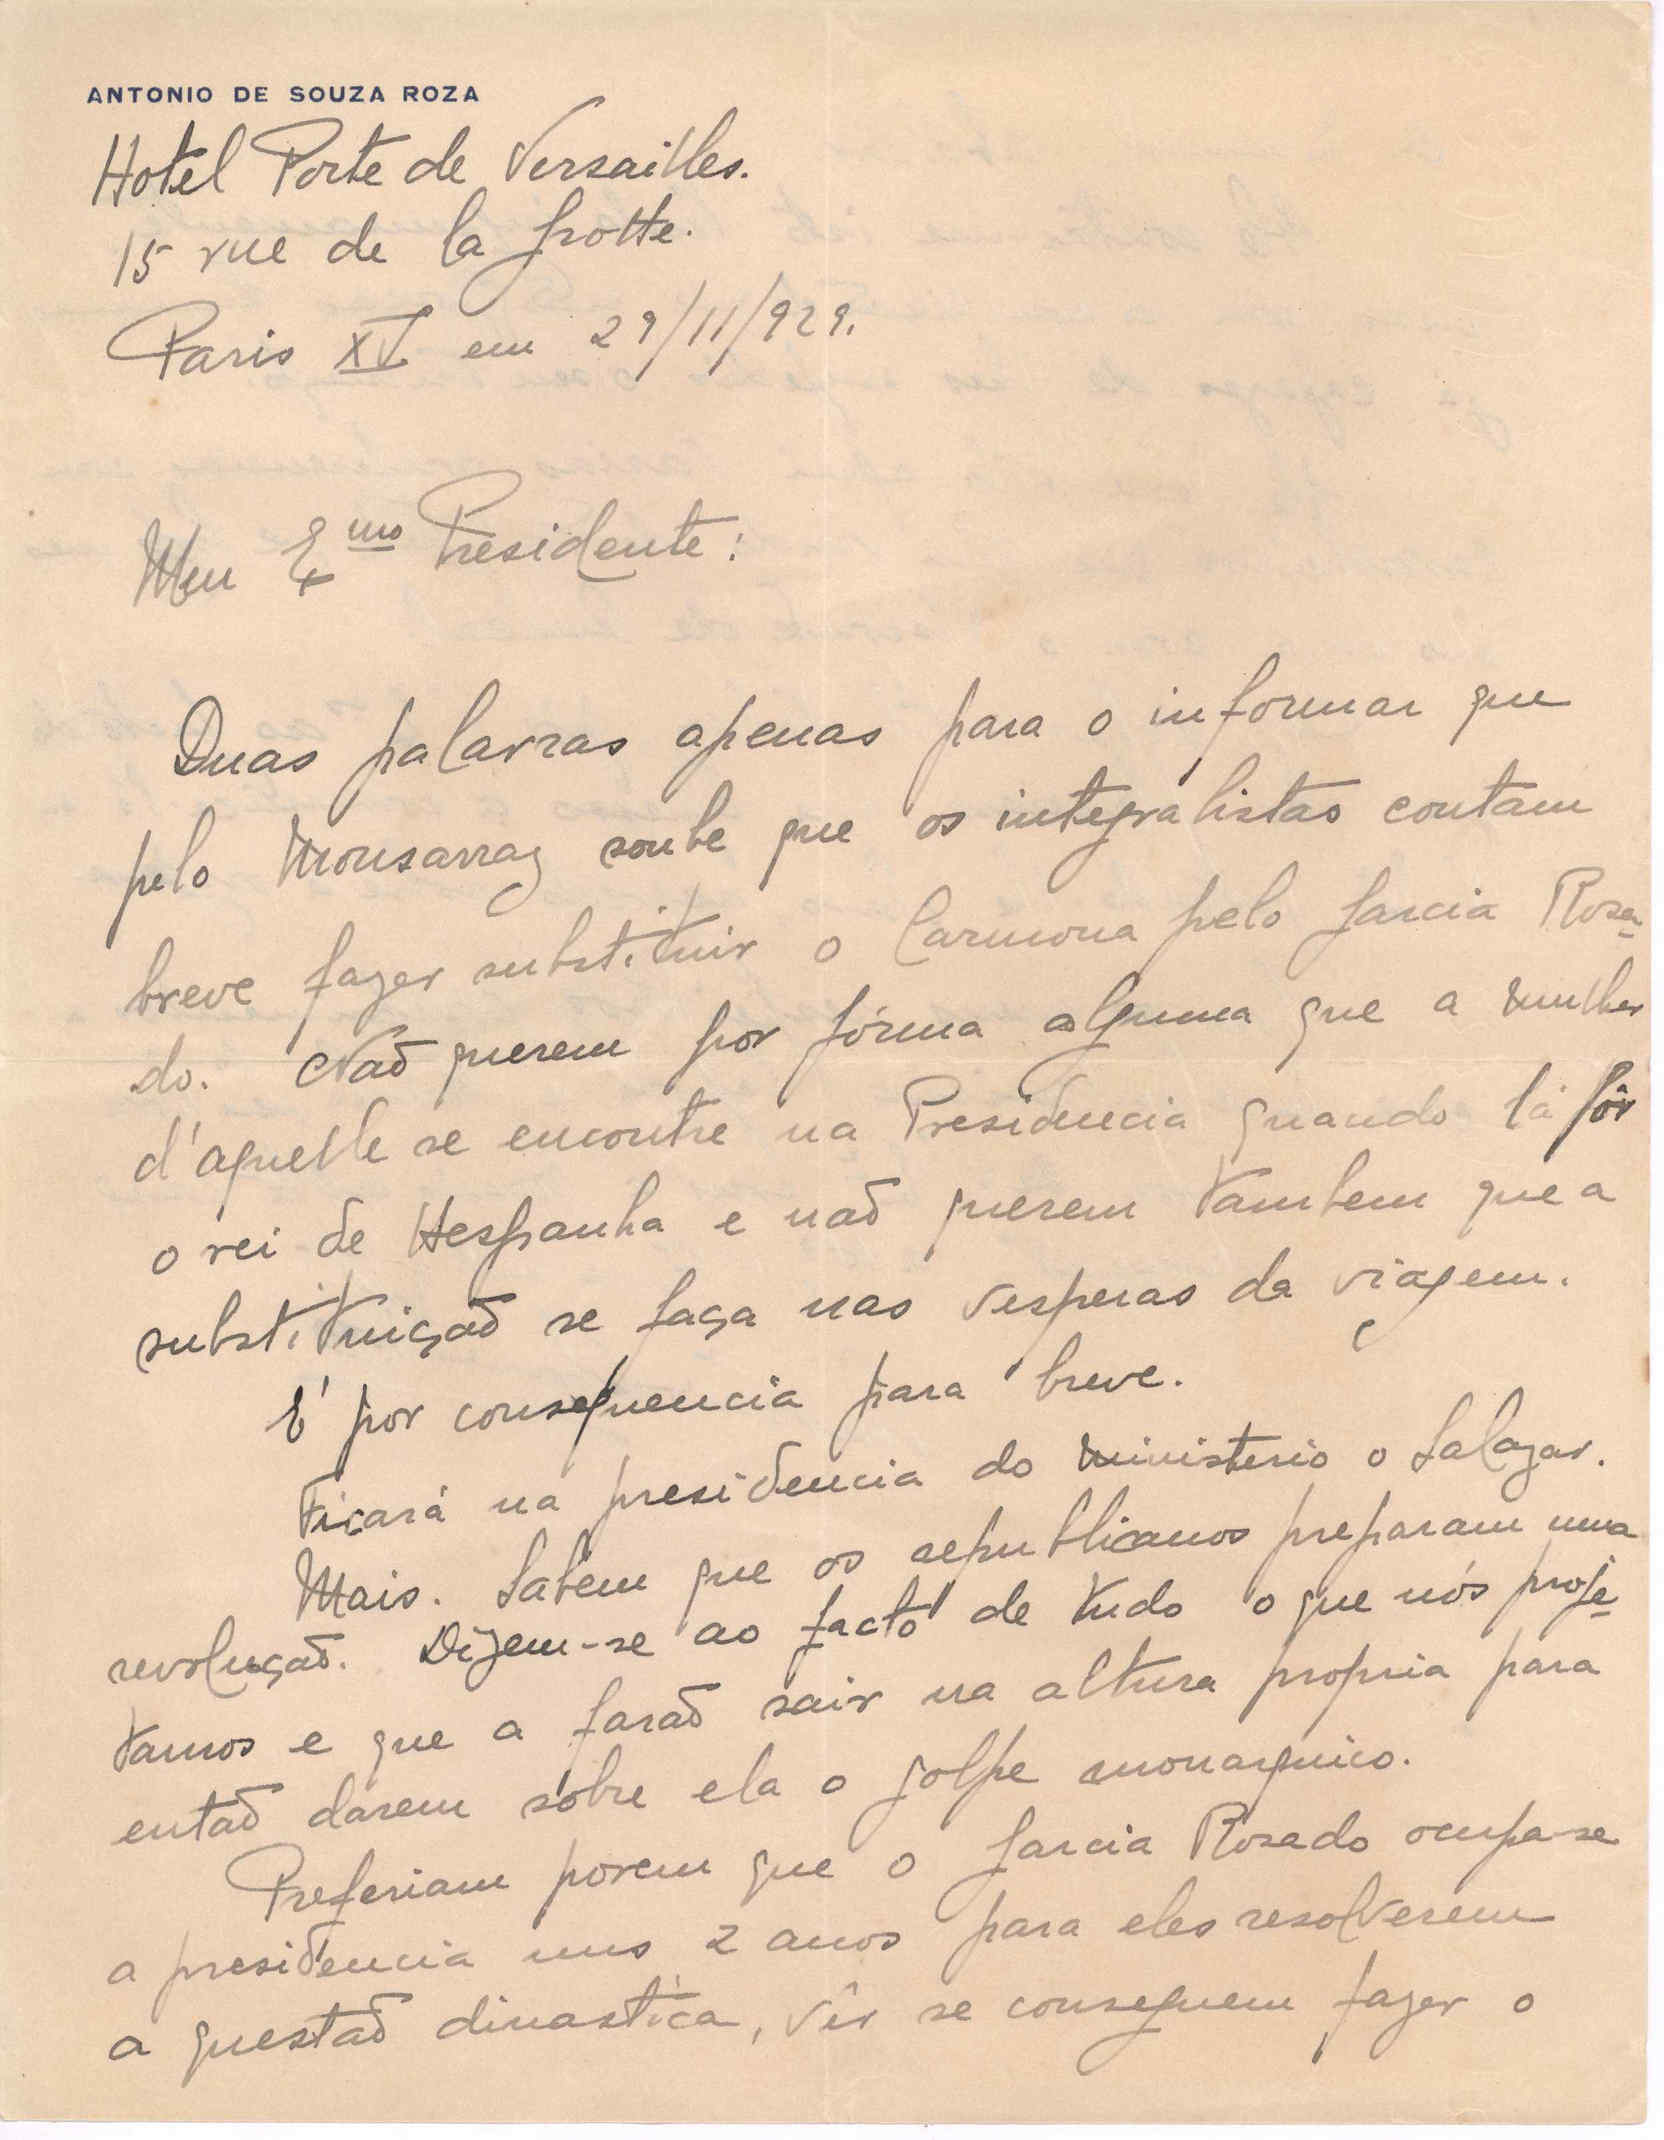 ANTONIO DE SOUZA ROZA
Hotel Porte de Versailles.
15 rue de la Grotte.
Paris XV em 29/11/929.
Meu Exmo Presidente:
Duas palavras apenas para o informar que
pelo Monsarraz soube que os integralistas contam
breve fazer substituir o Carmona pelo Garcia Rosa-
do. Não querem por fórma alguma que a mulher
d'aquelle se encontre na Presidencia quando lá fôr
o rei de Hespanha e não querem tambem que a
substituição se faça nas vesperas da viagem.
E' por consequencia para breve.
Ficará na presidencia do ministerio o Salazar.
Mais. Sabem que os republicanos preparam uma
revolução. Dizem-se ao facto de tudo o que nós proje-
tamos e que a farão sair na altura propria para
então darem sobre ela o golpe monarquico.
Preferiam porem que o Garcia Rosado ocupa-se
a presidencia uns 2 anos para eles resolverem
a questão dinastica, vêr se conseguem fazer o